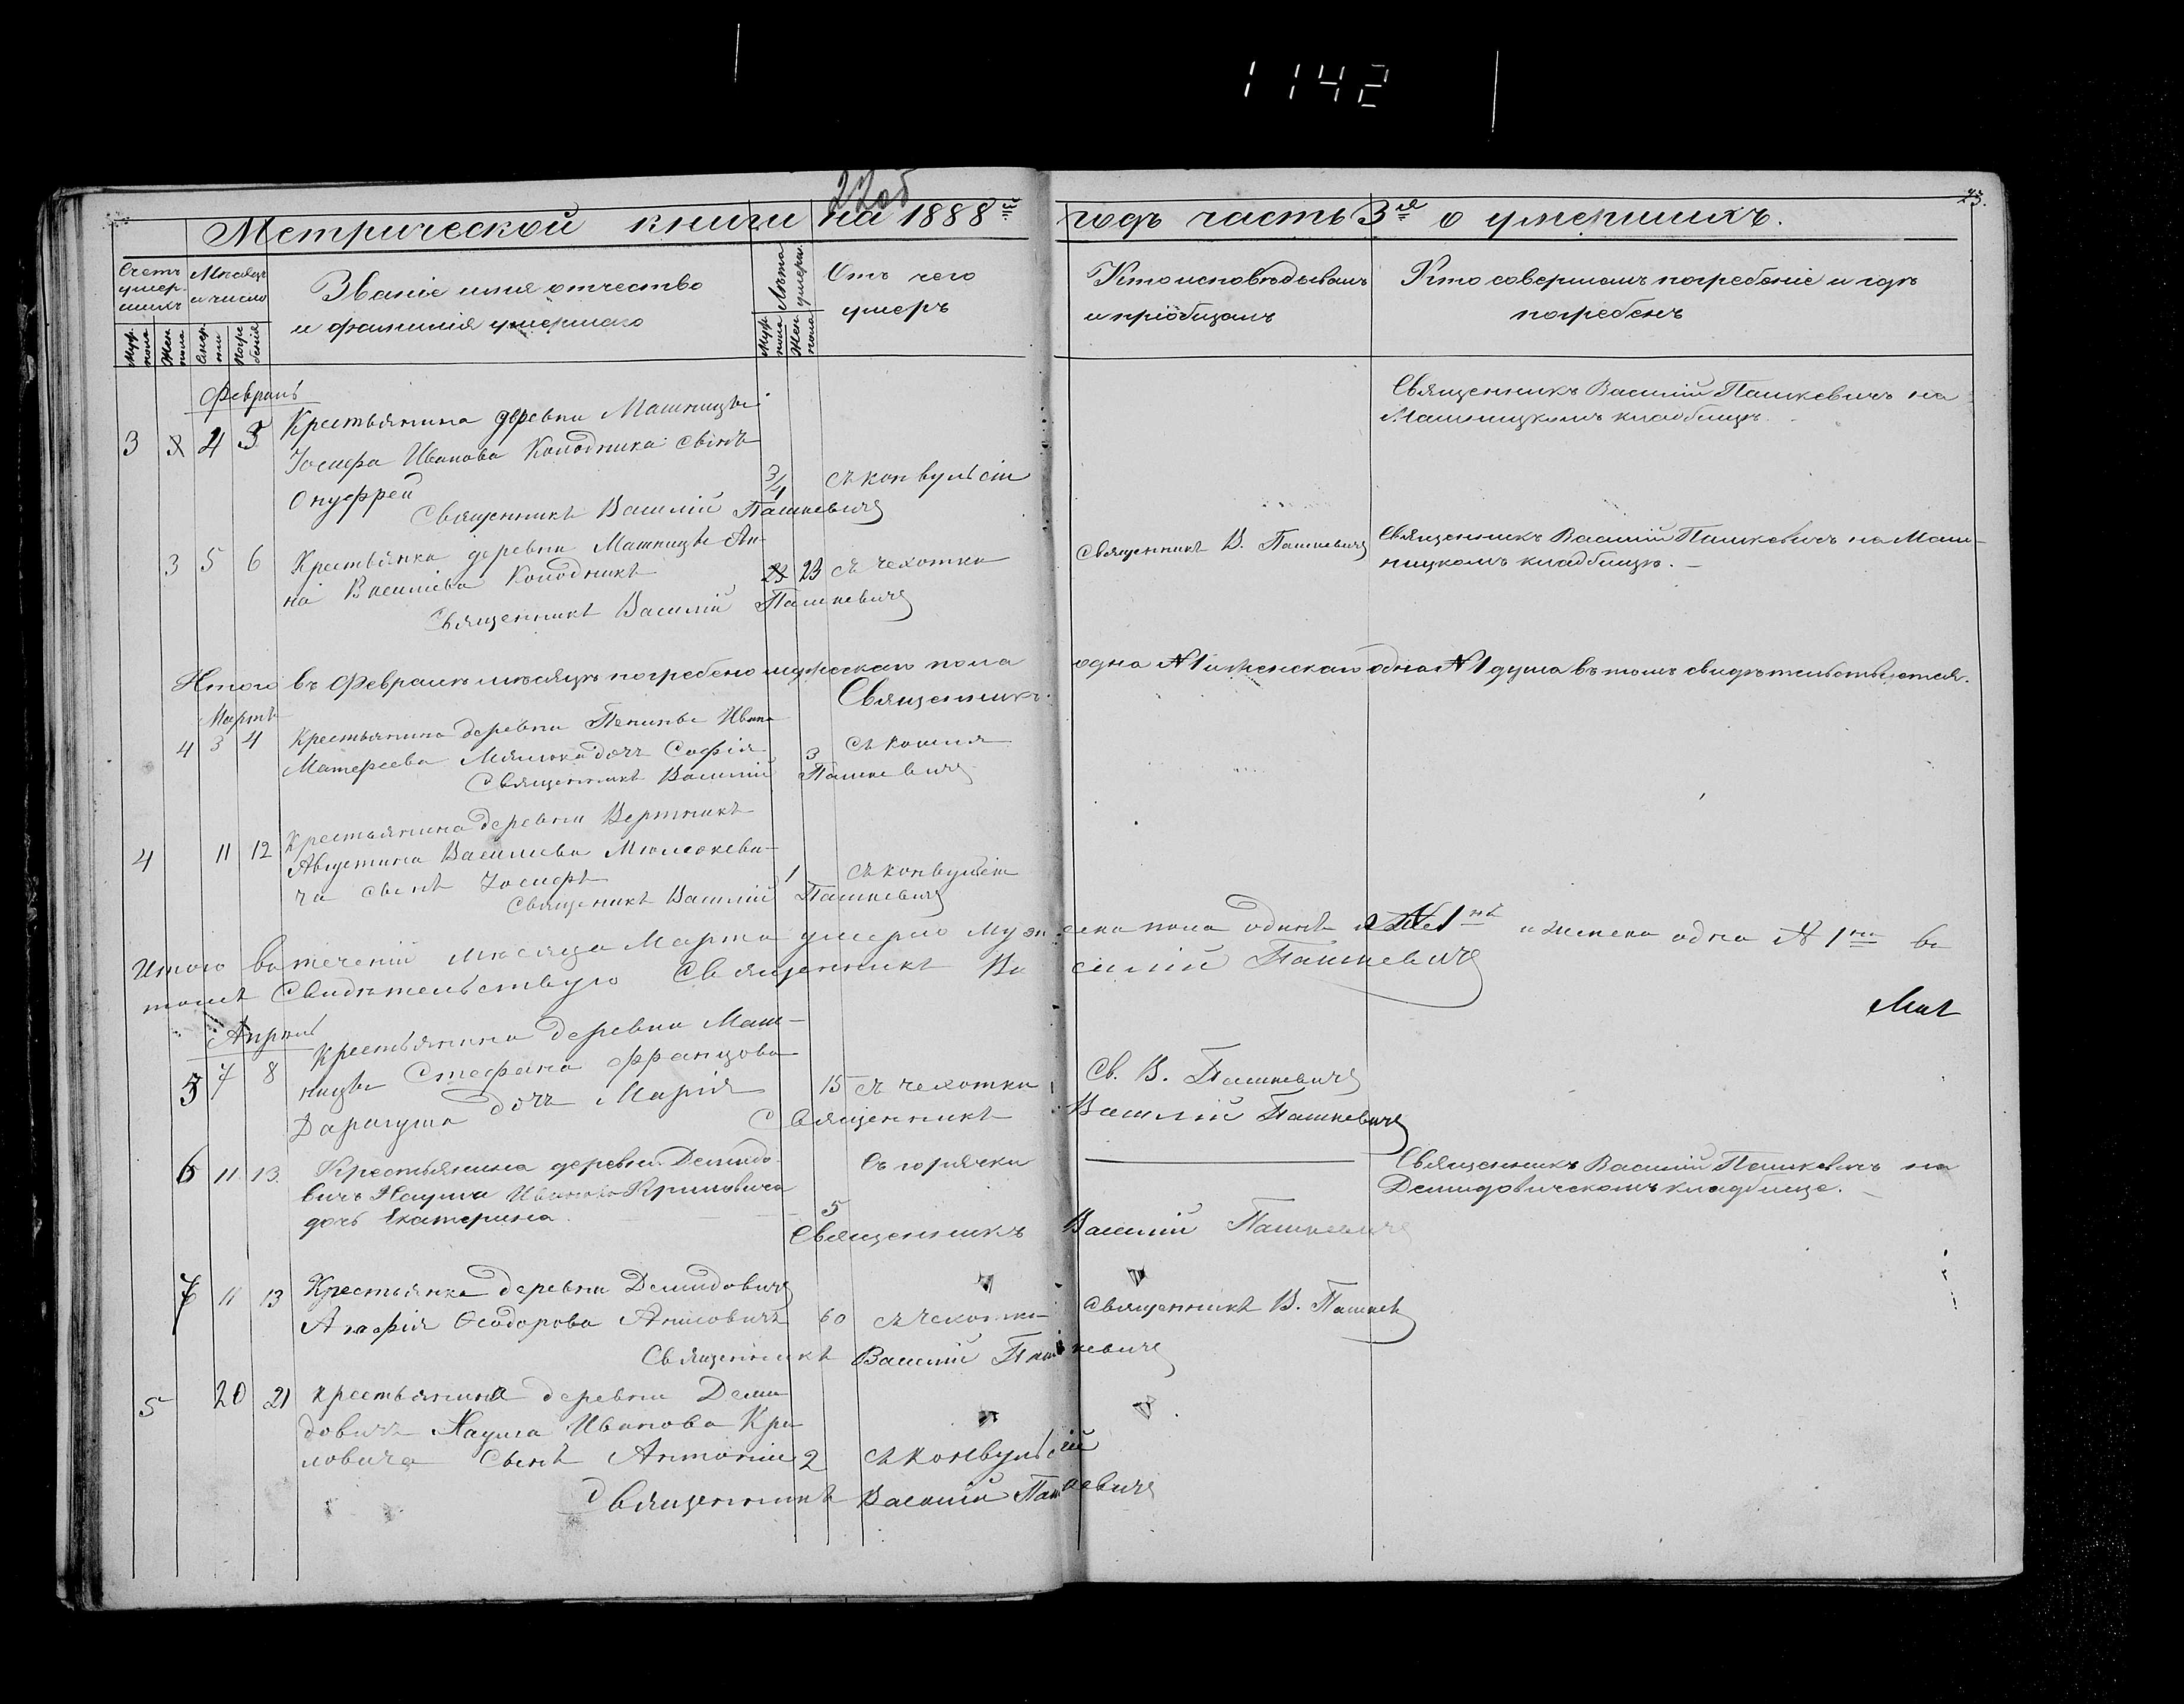 1142
22об
23.
Метрической книги на 1888й годъ часть 3я о умершихъ.
Счетъ умер-шихъ
Мѣсяцъ и число
Званіе имя отчество
и фамилія умершаго
Лѣта умерш.
Отъ чего
умеръ
Кто исповѣдывалъ
и пріобщалъ
Кто совершалъ погребеніе и гдѣ
погребенъ
Муж. пола
Жен. пола
Смер-ти
Погре-бенія
Муж. пола
Жен. пола
Февраль
3 4 5 Крестьянина деревни Машницы
Іосифа Иванова Колодника сынъ
Онуфрей 3/4 съ конвульсіи
Священникъ Василій Пашкевичъ
Священникъ Василій Пашкевичъ на
Машницкомъ кладбищѣ.
3 5 6 Крестьянка деревни Машницы Ан-
на Васильева Колодникъ 23 съ чахотки
Священникъ Василій Пашкевичъ
Священникъ В. Пашкевичъ
Священникъ Василій Пашкевичъ на Маш-
ницкомъ кладбищѣ. –
Итого въ Февралѣ мѣсяцѣ погребено мужескаго пола одна №1 и женскаго одна №1 душа въ томъ свидѣтельствуется.
Священникъ
Мартъ
4 3 4 Крестьянина деревни Ивана
Матфеева дочь Софія 3 съ кашля
Священникъ Василій Пашкевичъ
4 11 12 Крестьянина деревни Вертникъ
Августина Васильева
ча сынъ Іосифъ 1 съ конвульсіи
Священникъ Василій Пашкевичъ
Итого въ теченіи мѣсяца Марта умерло муж еска пола одинъ №1нъ и женска одна №1на въ
томъ свидѣтельствую Священникъ Ва силій Пашкевичъ
Апрѣль
5 7 8 Крестьянина деревни Маш-
ницы Стефана Францова
Дарагуша дочь Марія 15 съ чахотки
Св. В. Пашкевичъ
Священникъ Василій Пашкевичъ
6 11 13 Крестьянина деревни Демидо-
вичъ Наума Иванова Криловича
дочь Екатерина 5 Съ горячки
Священникъ Василій Пашкевичъ
Священникъ Василій Пашкевичъ на
Демидовическомъ кладбище. –
7 11 13 Крестьянка деревни Демидовичъ
Агафія Ѳеодорова 60 съ чахотки
Священникъ В. Пашкев
Священникъ Василій Паш кевичъ
5 20 21 Крестьянина деревни Деми-
довичъ Наума Иванова Кри
ловича сынъ Антоній 2 съ конвульсій
Священникъ Василій Пашкевичъ